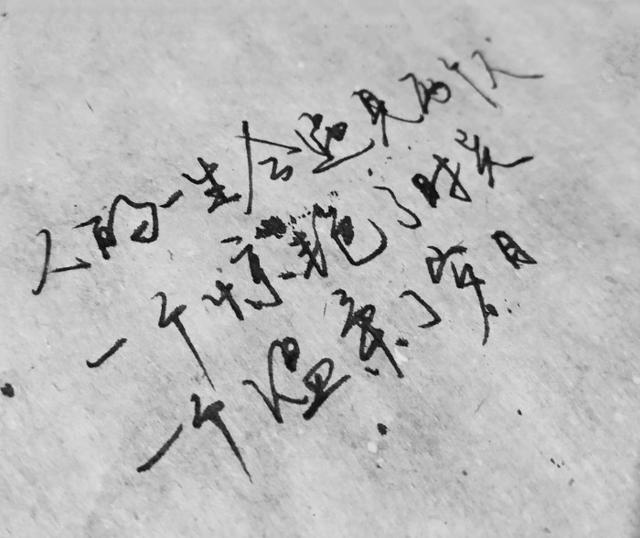 人的一生会遇见两个人
一个惊艳了时光
一个温柔了岁月